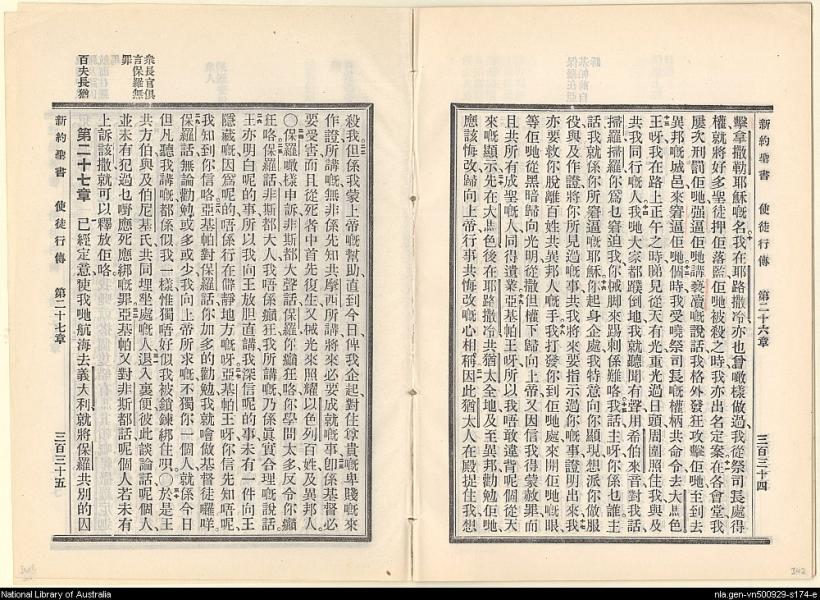 新約聖書　使徒行傳　第二十六章　三百三十四
擊拿撒勒耶穌嘅名我在耶路撒冷亦也曾噉樣做過我從祭司長處得
權就將好多聖徒押佢落監佢哋被殺之時我亦出名定案在各會堂我
屢次刑罰佢哋强逼佢哋講褻瀆嘅說話我格外發狂攻擊佢哋至到去
異邦嘅城邑來窘逼佢哋個時我受嘵祭司長嘅權柄共命令去大馬色
王呀我在路上正午之時睇見從天有光重光過日頭周圍照住我與及
共我同行嘅人我哋大家都蹼倒地我就聽聞有聲用希伯來音對我話
掃羅掃羅你爲乜窘逼我你械脚來踢刺係難咯我話主呀你係乜誰主
話我就係你所窘逼嘅耶穌你起身企處我特意向你顯現想派你做服
役及作證將你所見過嘅事共我將來要指示過你嘅事證明出來我
亦要救你脫離百姓共異邦人嘅手我打發你到佢哋處來開佢哋嘅眼
等佢哋從黑暗歸向光明從撒但權下歸向上帝又因信我得蒙赦罪而
且共所有成聖嘅人同得遺業亞基帕王呀所以我唔敢違背呢個從天
來嘅顯示先在大馬色後在耶路撒冷共猶太全地及至異邦勸勉佢哋
應該悔改歸向上帝行事共悔改嘅心相稱因此猶太人在殿捉住我想
殺我但係我蒙上帝嘅幫助直到今日俾我企起對住尊貴嘅卑賤嘅來
作證所講嘅無非係先知共摩西所講將來必要成就嘅事卽係基督必
要受害而且從死者中首先復生又械光來照耀以色列百姓及異邦人
〇保羅噉樣申訴非斯都大聲話保羅你癲狂咯你學問太多反令你癲
狂咯保羅話非斯都大人我唔係癲狂我所講嘅乃係眞實合理嘅說話
王亦明白呢的事所以我向王放胆直講我深信呢的事未有一件向王
隱藏嘅因爲呢的唔係行在僻靜地方嘅呀亞基帕王呀你信先知唔呢
我知到你信咯亞基帕對保羅話你加多的勸勉我就會做基督徒囉咩
保羅話無論勸勉或多或少我向上帝所求嘅不獨你一個人就係今日
但凡聽我講嘅都係似我一樣惟獨唔好似我被鎖鍊綁住唄〇於是王
共方伯與及伯尼基氏共同埋坐處嘅人退入裏便彼此談論話呢個人
並未有犯過乜嘢應死應綁嘅罪亞基帕又對非斯都話呢個人若未有
上訴該撒就可以釋放佢咯
第二十七章　已經定意使我哋航海去義大利就將保羅共別的因
新約聖書　使徒行傳　第二十七章　三百三十五
衆長官俱
言保羅無
罪
百夫長猶
National Library of Australia
nla.gen-vn500929-s174-e